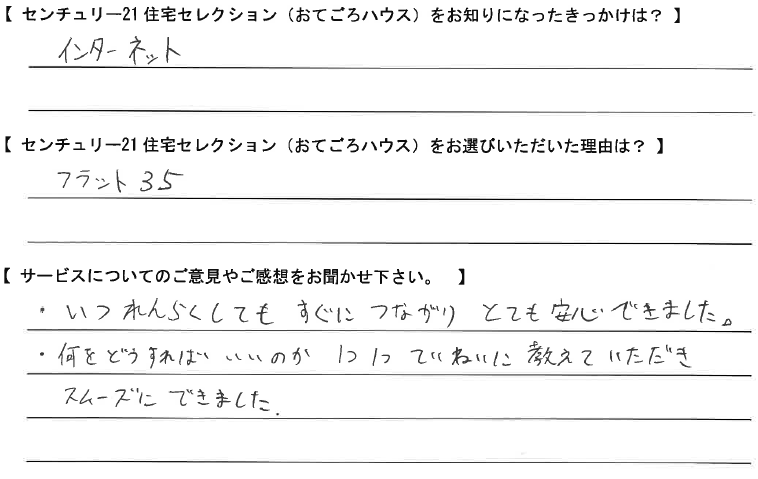 【 センチュリー21 住宅セレクション（おてごろハウス）をお知りになったきっかけは？ 】
インターネット
【 センチュリー21 住宅セレクション（おてごろハウス）をお選びいただいた理由は？ 】
フラット35
【 サービスについてのご意見やご感想をお聞かせ下さい。 】
・いつれんらくしても すぐに つながり とても 安心できました。
・何をどうすれば いいのか 1つ1つ ていねいに 教えて いただき
スムーズに できました.